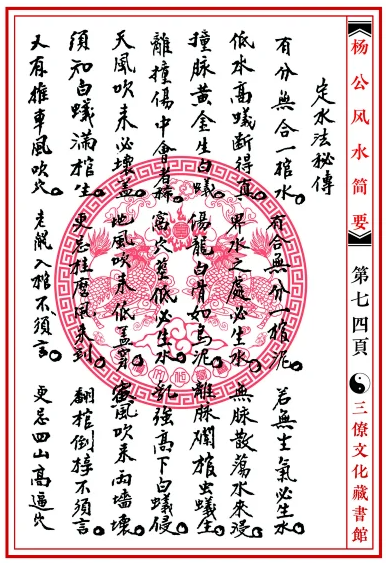 杨公风水简要 第七四頁 三僚文化藏書館
定水法秘傳
有分無合一棺水。有合無分一棺泥。若無生氣必生水。
低水高蟻断得真。界水之處必生水。無脉散蕩水來浸。
撞脉黄金生白蟻。傷龍白骨如烏泥。離脉棺虫蟻生。
離撞傷中會者稀。窩穴葬低必生水。乳強高下白蟻侵。
天風吹来必壊盖。地風吹来低盖。風吹来兩墙壊。
須知白蟻滿棺生。更忌風来到。翻棺倒槨不須言。
又有推車風吹穴。老鼠入棺不須言。更忌四山高逼穴